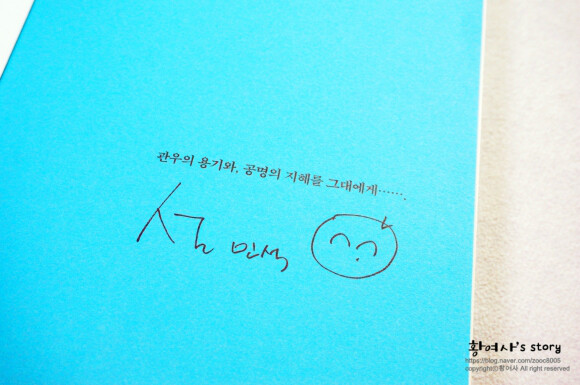 관우의 용기와, 공명의 지혜를 그대에게…….
설민석
황여사's story
https://blog.naver.com/zooc8005
copyright©황여사 All right reserved